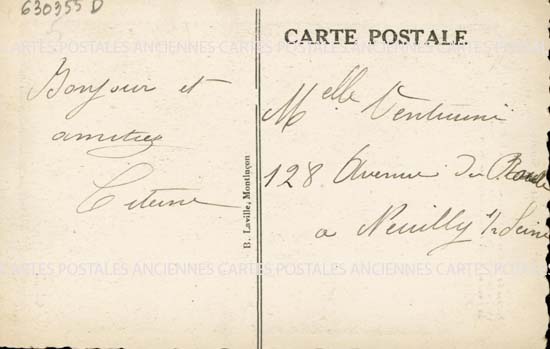 630355 D
CARTE POSTALE
CARTES POSTALES ANCIENNES CARTES POSTALES ANCIENNES CARTES
Bonjour et
amitiés
B. Laville, Montluçon
Melle Venturini
128 Avenue du Roule
a Neuilly s/ Seine
CARTES POSTALES ANCIENNES CARTES POSTALES ANCIENNES CARTES